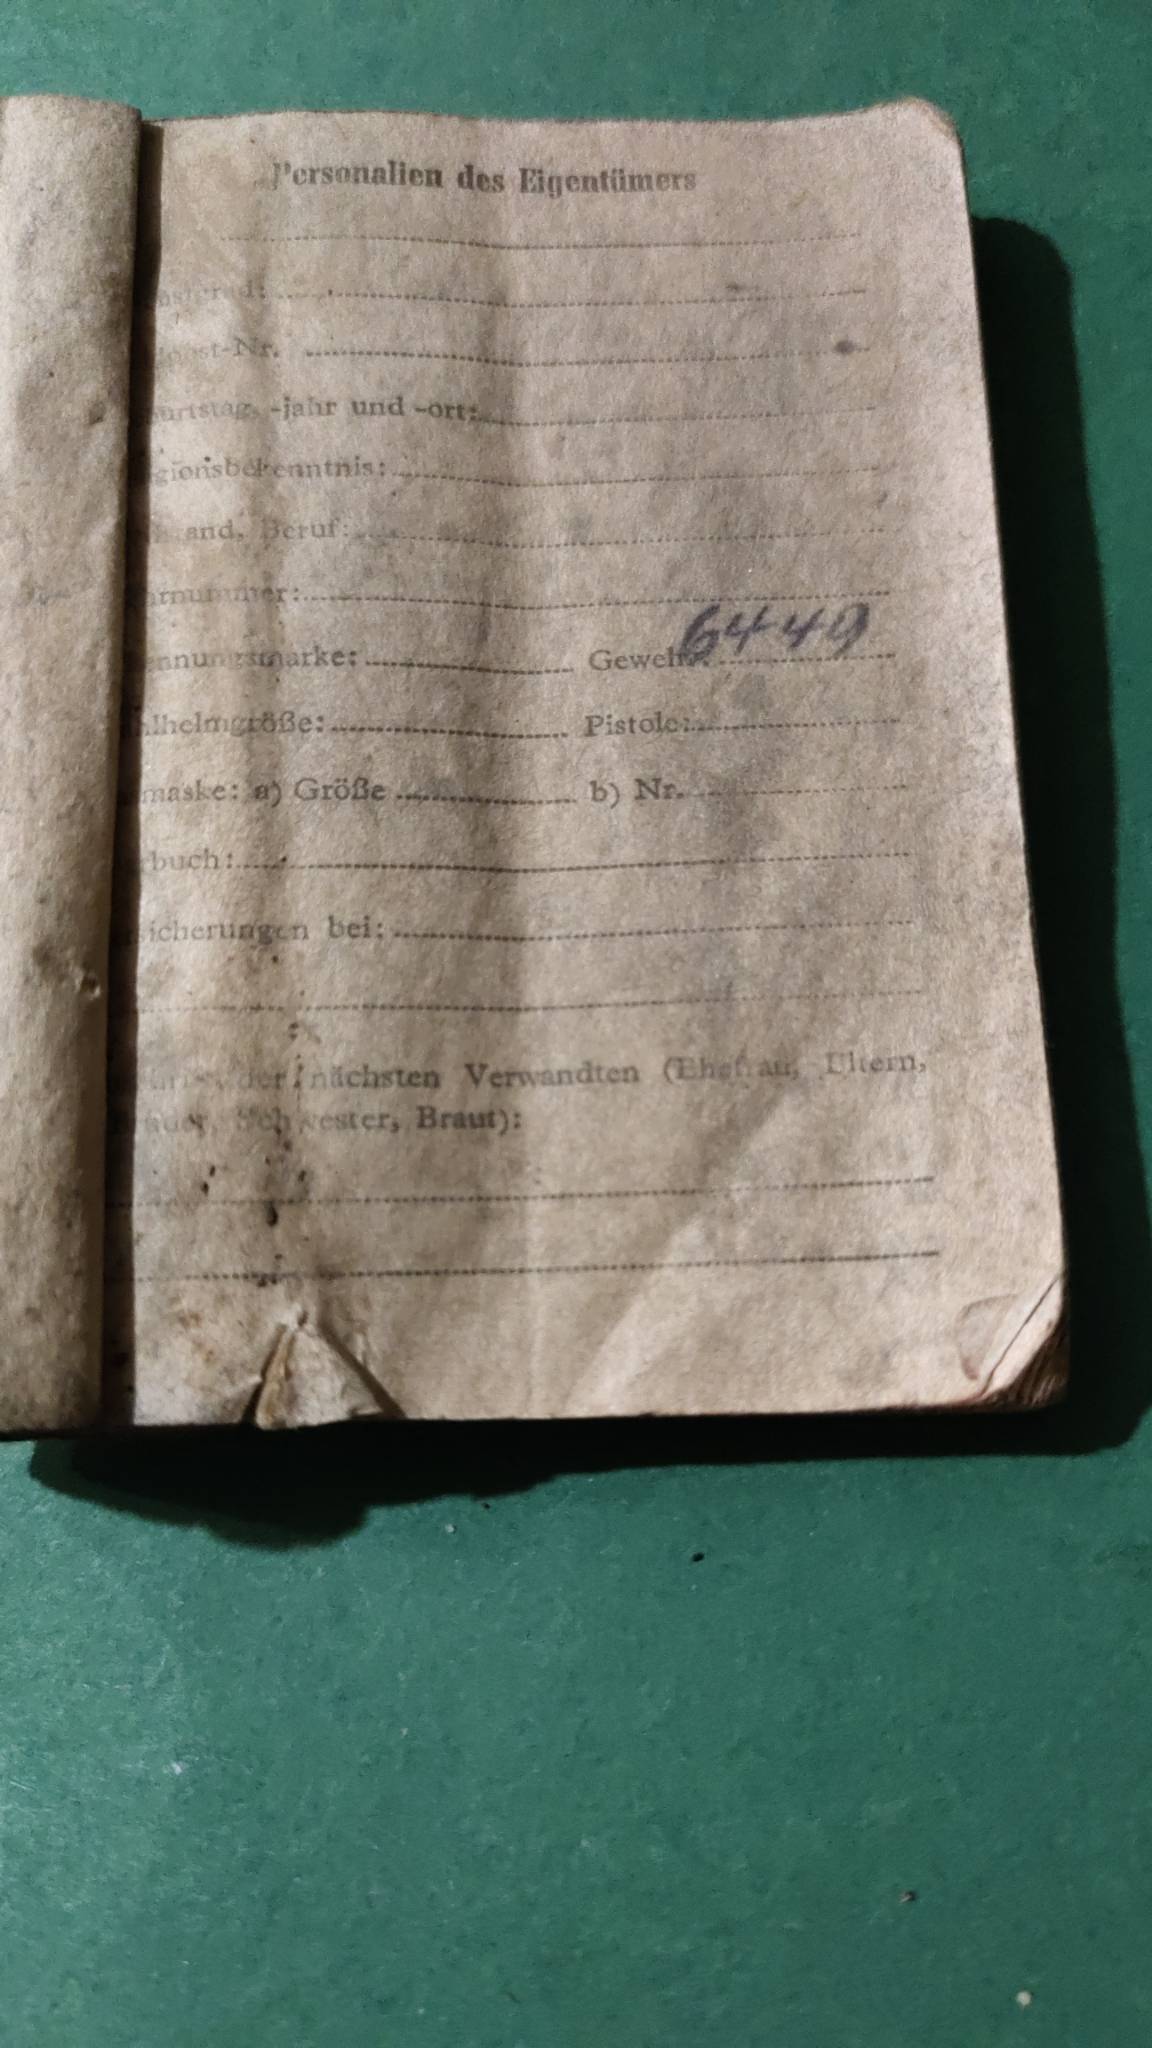 Personalien des Eigentümers
-Nr.
-jahr und -ort:
gionsbekenntnis:
and, Beruf:
rnummer:
ennungsmarke: Gewehr: 6449
lhelmgröße: Pistole:
maske: a) Größe b) Nr.
buch:
sicherungen bei:
der nächsten Verwandten (Ehefrau, Eltern,
Schwester, Braut):